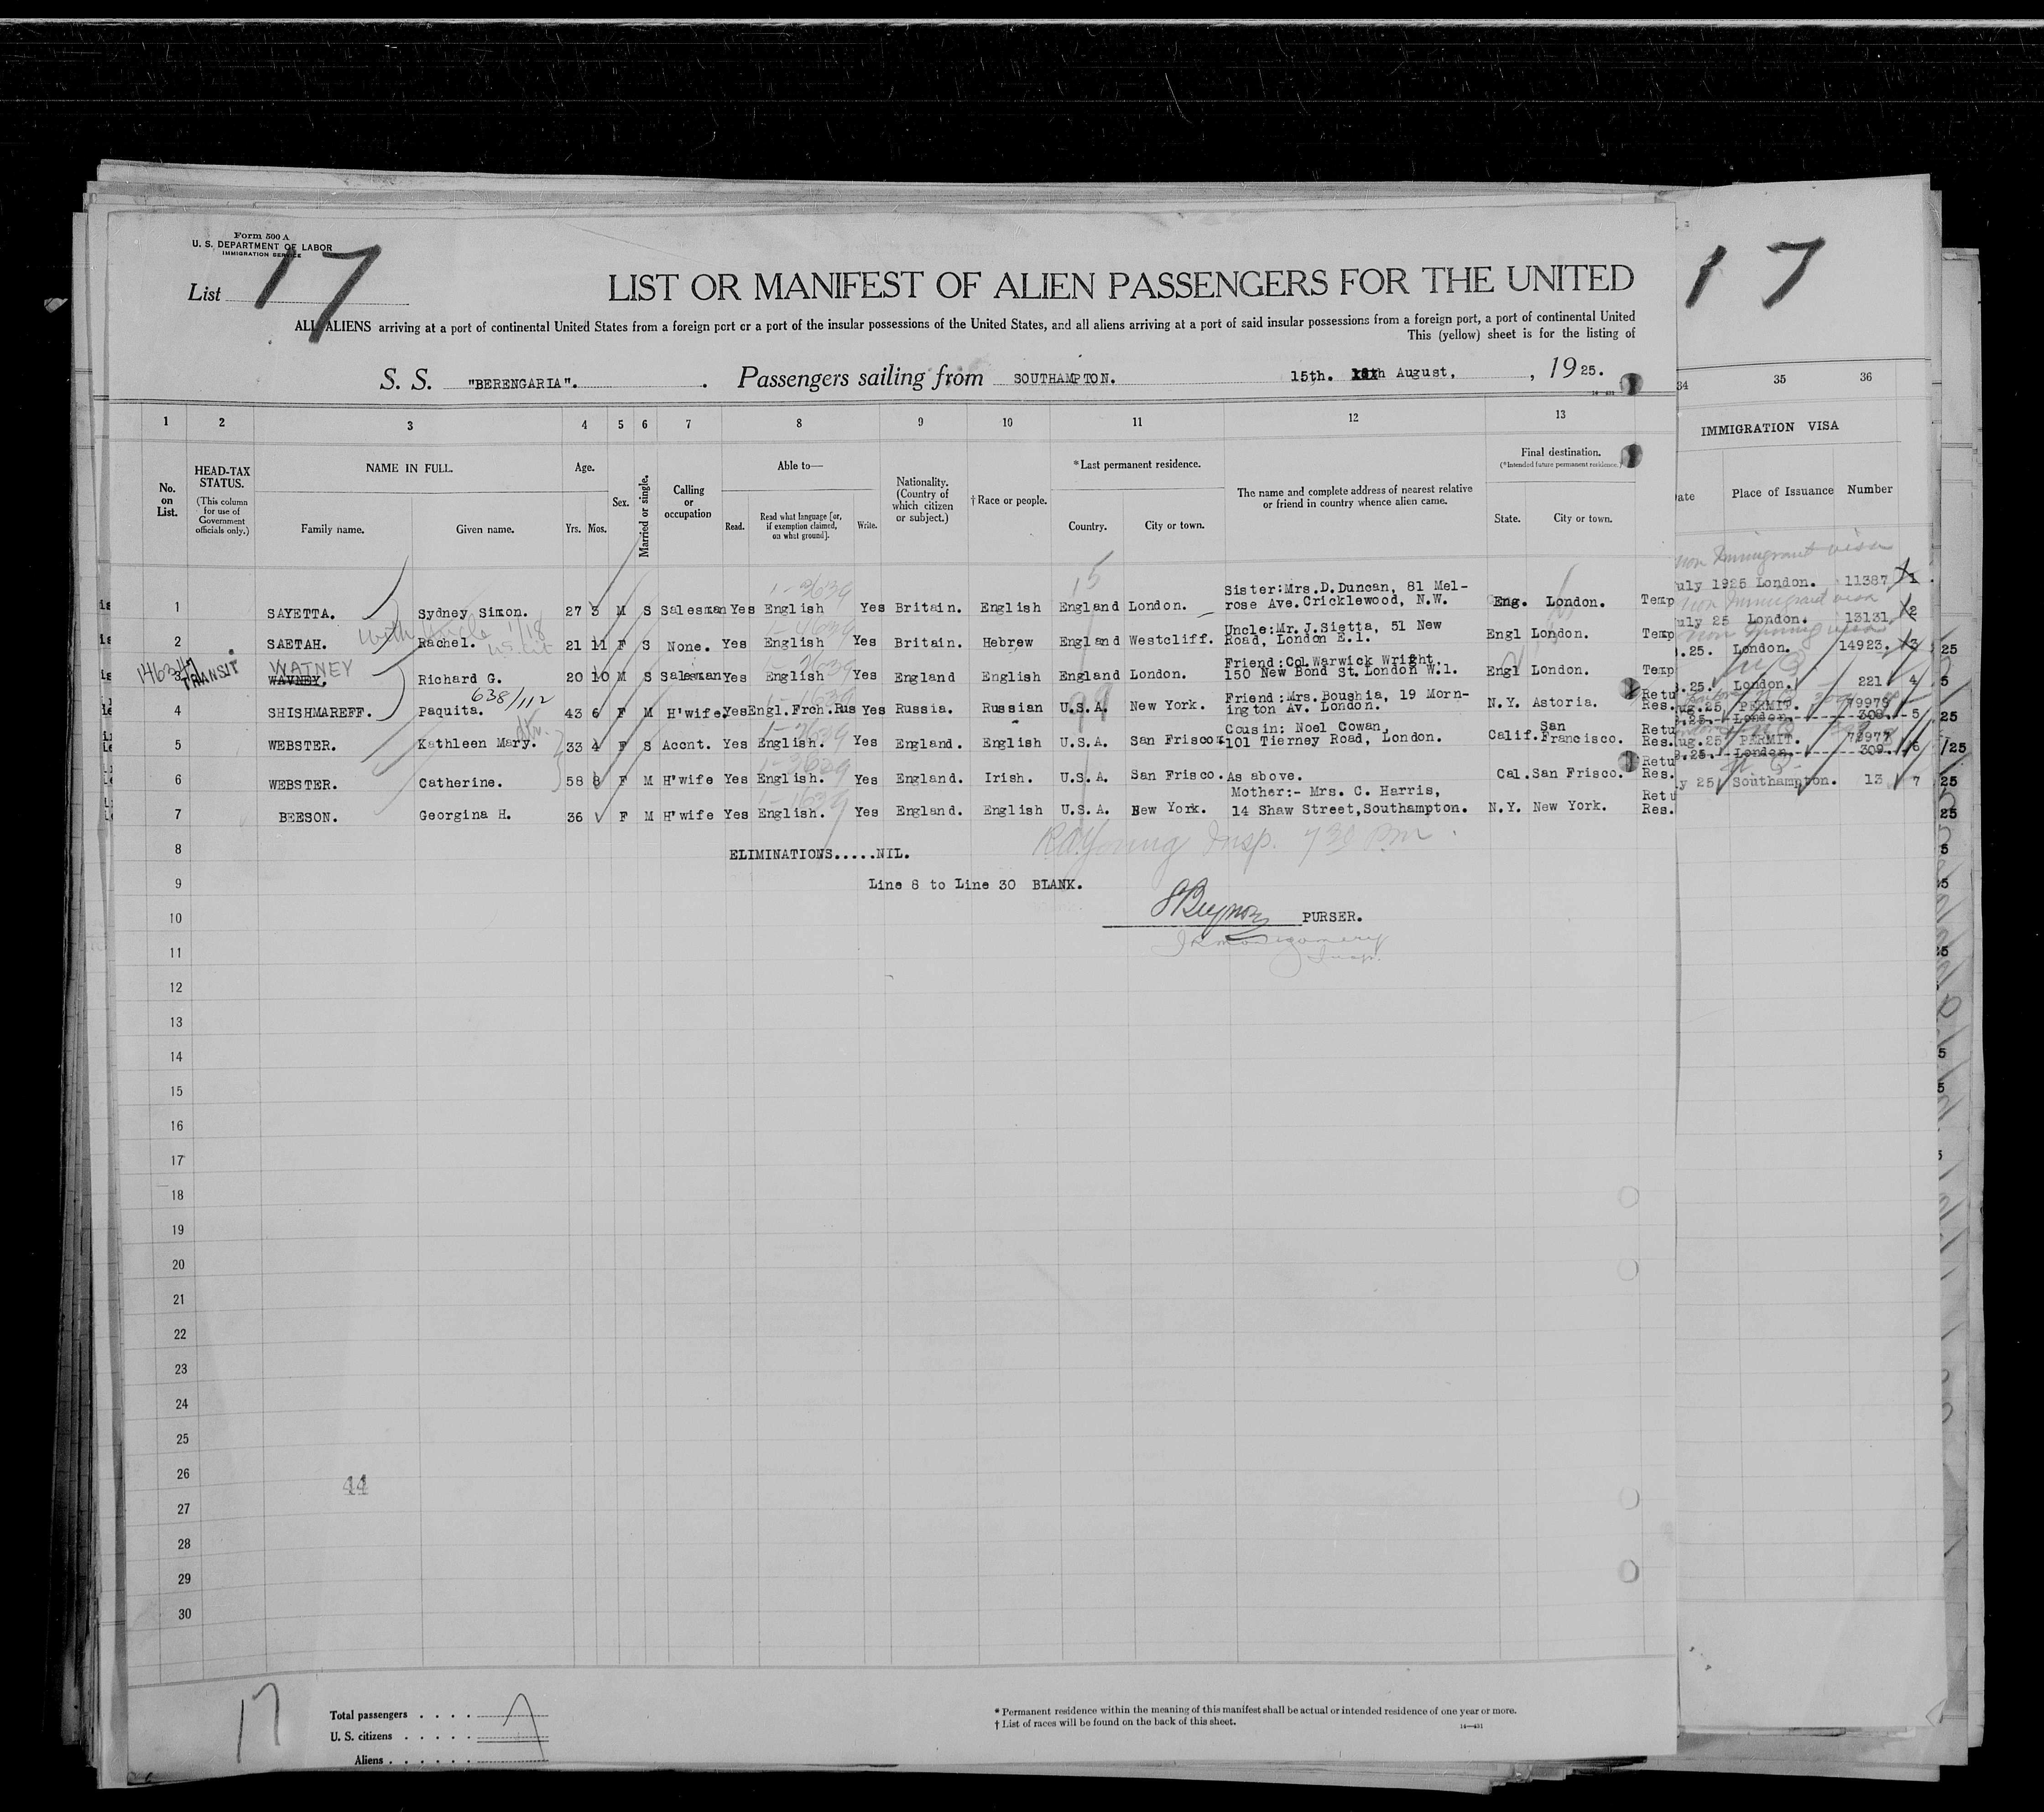 Form 500 A
U. S. DEPARTMENT OF LABOR
IMMIGRATION SERVICE
List 17
17
LIST OR MANIFEST OF ALIEN PASSENGERS FOR THE UNITED
ALL ALIENS arriving at a port of continental United States from a foreign port or a port of the insular possessions of the United States, and all aliens arriving at a port of said insular possessions from a foreign port, a port of continental United
This (yellow) sheet is for the listing of
S. S. "BERENGARIA". Passengers sailing from SOUTHAMPTON. 15th. August, , 1925.
1 2 3 4 5 6 7 8 9 10 11 12 13 34 35 36
No. on List.
HEAD-TAX STATUS.
(This column for use of Government officials only.)
NAME IN FULL.
Family name. Given name.
Age.
Yrs. Mos.
Sex.
Married or single.
Calling or occupation
Able to—
Read. Read what language [or, if exemption claimed, on what ground]. Write.
Nationality. (Country of which citizen or subject.)
†Race or people.
*Last permanent residence.
Country. City or town.
The name and complete address of nearest relative or friend in country whence alien came.
Final destination.
(*Intended future permanent residence.)
State. City or town.
IMMIGRATION VISA
Place of Issuance Number
15
non Immigrant visa
1 SAYETTA. Sydney Simon. 27 3 M S Salesman Yes English Yes Britain. English England London. Sister:Mrs.D.Duncan, 81 Mel-
rose Ave. Cricklewood, N.W. Eng. London. Temp uly 1925 London. 11387 1
with uncle
2 SAETAH. Rachel. 21 11 F S None. Yes English Yes Britain. Hebrew England Westcliff. Uncle:Mr.J.Sietta, 51 New
Road, London E.1. Engl London. Temp uly 25 London. 13131. 2
TRANSIT WATNEY
3 WAVNEY. Richard G. 20 10 M S Salesman Yes English Yes England English England London. Friend:Col.Warwick Wright,
150 New Bond St.London W.1. Engl London. Temp .25. London. 14923. 3
638/112
4 SHISHMAREFF. Paquita. 43 6 F M H'wife. Yes Engl.Frch.Rus Yes Russia. Russian U.S.A. New York. Friend:Mrs.Boushia, 19 Morn-
ington Av. London. N.Y. Astoria. Retu
Res. .25. London. 221 4
5 WEBSTER. Kathleen Mary. 33 4 F S Accnt. Yes English. Yes England. English U.S.A. San Frisco. Cousin: Noel Cowan,
101 Tierney Road, London. Calif. San
Francisco. Retu
Res. ug.25 PERMIT.
.25. London. 308. 5
6 WEBSTER. Catherine. 58 8 F M H'wife Yes English. Yes England. Irish. U.S.A. San Frisco. As above. Cal. San Frisco. Retu
Res. ug.25 PERMIT.
.25. London. 309. 6
7 BEESON. Georgina H. 36 F M H'wife Yes English. Yes England. English U.S.A. New York. Mother:- Mrs. C. Harris,
14 Shaw Street,Southampton. N.Y. New York. Retu
Res. y 25 Southampton. 13 7
8 ELIMINATIONS.....NIL.
Insp. 7 30 Pm.
9 Line 8 to Line 30 BLANK.
10 PURSER.
11 Montgomery
Insp.
12
13
14
15
16
17
18
19
20
21
22
23
24
25
26 44
27
28
29
30
17
Total passengers . . . . 7
U. S. citizens . . . . .
Aliens . . . . . .
* Permanent residence within the meaning of this manifest shall be actual or intended residence of one year or more.
† List of races will be found on the back of this sheet.
14—431